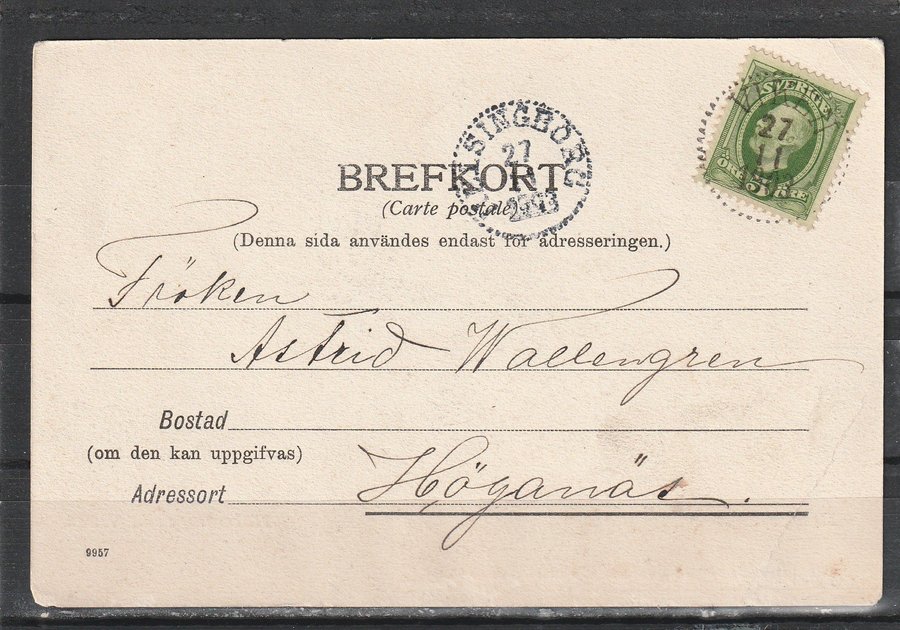 SVERIGE
27
11
5 ÖRE
HELSINGBORG
27
1903
BREFKORT
(Carte postale)
(Denna sida användes endast för adresseringen.)
Fröken
Astrid Wallengren
Bostad
(om den kan uppgifvas)
Adressort Höganäs.
9957